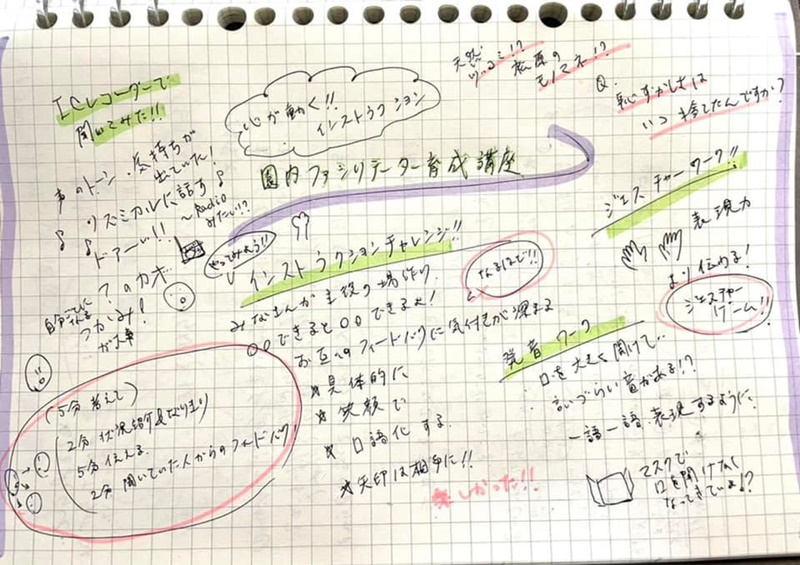 ICレコーダーで
聞いてみた!!
声のトーン・気持ちが
出ていた!
リズミカルに話す♪
〜Radio
みたい!?
ドアーい!!
?の力オ…
つかみ!
が大事
心が動く!!
インストラクション
園内ファシリテーター育成講座
天然
モノマネ!?
Q.
恥ずかしさは
いつ捨てたんですか?
やってみよう!!
インストラクションチャレンジ!!
なるほど!!
みなさんが主役の場作り
○○できると○○できるよ!
お互いのフィードバックに気付きが深まる
★具体的に
★笑顔で
★口語化する
★矢印は相手に!!
楽しかった!!
(5分 考えて)
2分 状況説明&なりきり
5分 伝える
2分 聞いていた人からのフィードバック
ジェスチャーワーク!!
表現力
より伝わる!
ジェスチャー
ゲーム!!
発音ワーク
口を大きく開けて…
言いづらい音がある!?
一語一語表現するように
マスクで
口を開けなく
なってきている!?